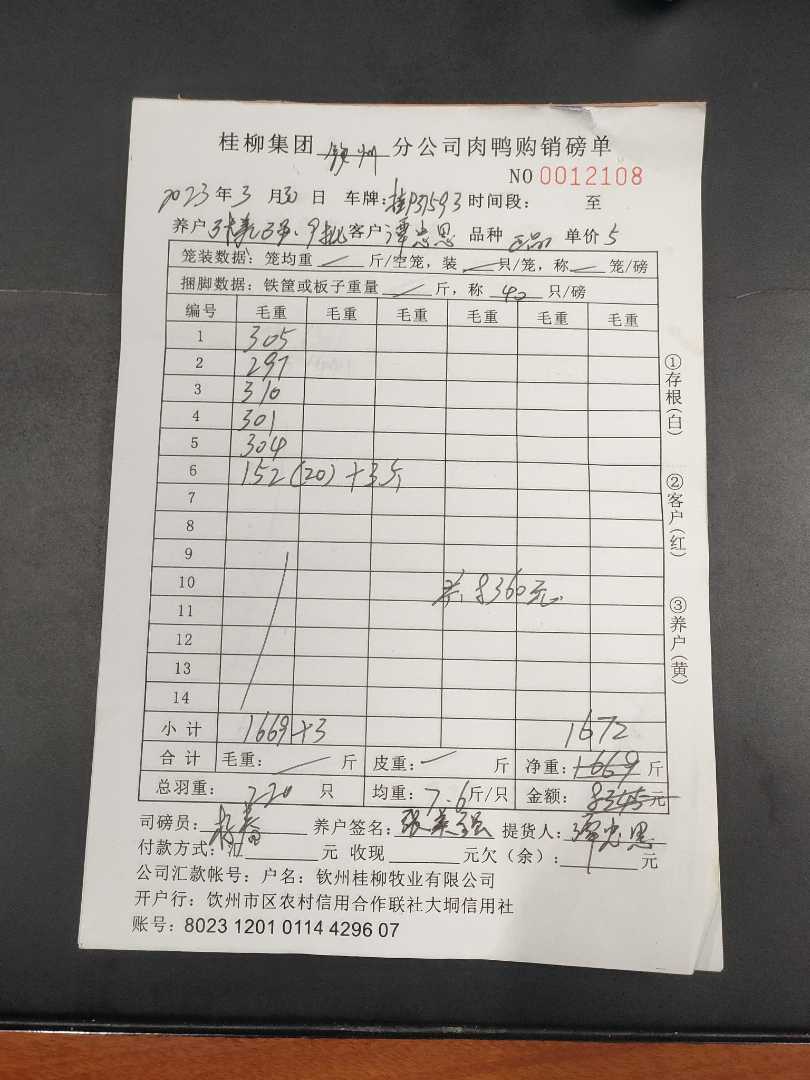 桂柳集团 钦州 分公司肉鸭购销磅单
NO 0012108
2023 年 3 月 30 日 车牌: 时间段: 至
养户 9批 客户 谭忠思 品种 正品 单价 5
笼装数据: 笼均重 斤/空笼, 装 只/笼, 称 笼/磅
捆脚数据: 铁筐或板子重量 斤, 称 40 只/磅
编号 毛重 毛重 毛重 毛重 毛重 毛重
1 305
2 297
3 310
4 301
5 304
6 152 (20) +3斤
7
8
9
10 共: 8360元
11
12
13
14
小计 1669+3 1672
合计 毛重: 斤 皮重: 斤 净重: 1669 斤
总羽重: 220 只 均重: 7.6 斤/只 金额: 8345 元
司磅员: 养户签名: 张美强 提货人: 谭忠思
付款方式: 汇 元 收现 元欠(余): 元
公司汇款帐号: 户名: 钦州桂柳牧业有限公司
开户行: 饮州市区农村信用合作联社大垌信用社
账号: 8023 1201 0114 4296 07
①存根(白)
②客户(红)
③养户(黄)